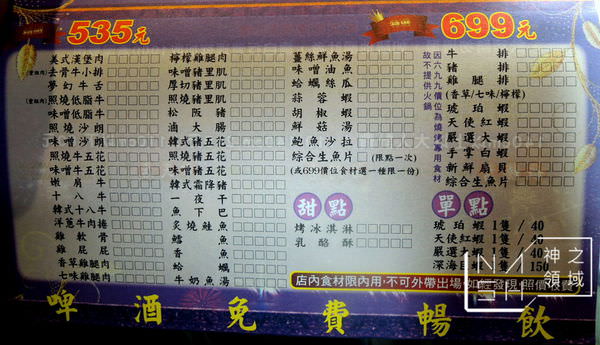 特價 535元
美式漢堡肉
(重組肉)去骨牛小排
夢幻牛舌
(重組肉)照燒低脂牛
味噌低脂牛
照燒沙朗
味噌沙朗
照燒牛五花
味噌牛五花
嫩肩牛
十八牛
韓式十八牛
洋蔥牛肉捲
雞軟骨
雞屁股
香草雞腿肉
七味雞腿肉
檸檬雞腿肉
味噌豬里肌
厚切豬里肌
照燒豬里肌
松阪豬
鹵大腸
韓式豬五花
味噌豬五花
照燒豬五花
韓式霜降豬
一夜干
魚下巴
炙燒鮭魚
鱈魚
香魚
蛤蠣
牛奶魚
薑絲鮮魚湯
味噌油魚
蛤蠣絲瓜
蒜蓉蝦
胡椒蝦
鮮菇湯
鮑魚沙拉
綜合生魚片(限點一次)
(或699價位食材選一種限一份)
甜點
烤冰淇淋
乳酪酥
特價 699元
因六九九價位為燒烤專用食材
故不提供火鍋
牛排
豬排
雞腿排
(香草/七味/檸檬)
琥珀蝦
天使紅蝦
嚴選大蝦
手掌白蝦
新鮮扇貝
綜合生魚片
單點
琥珀蝦1隻/40
天使紅蝦1隻/40
嚴選大蝦1隻/40
深海巨蝦1隻/150
店內食材限內用,不可外帶出場,如經發現,照價收費
啤酒免費暢飲
神之領域